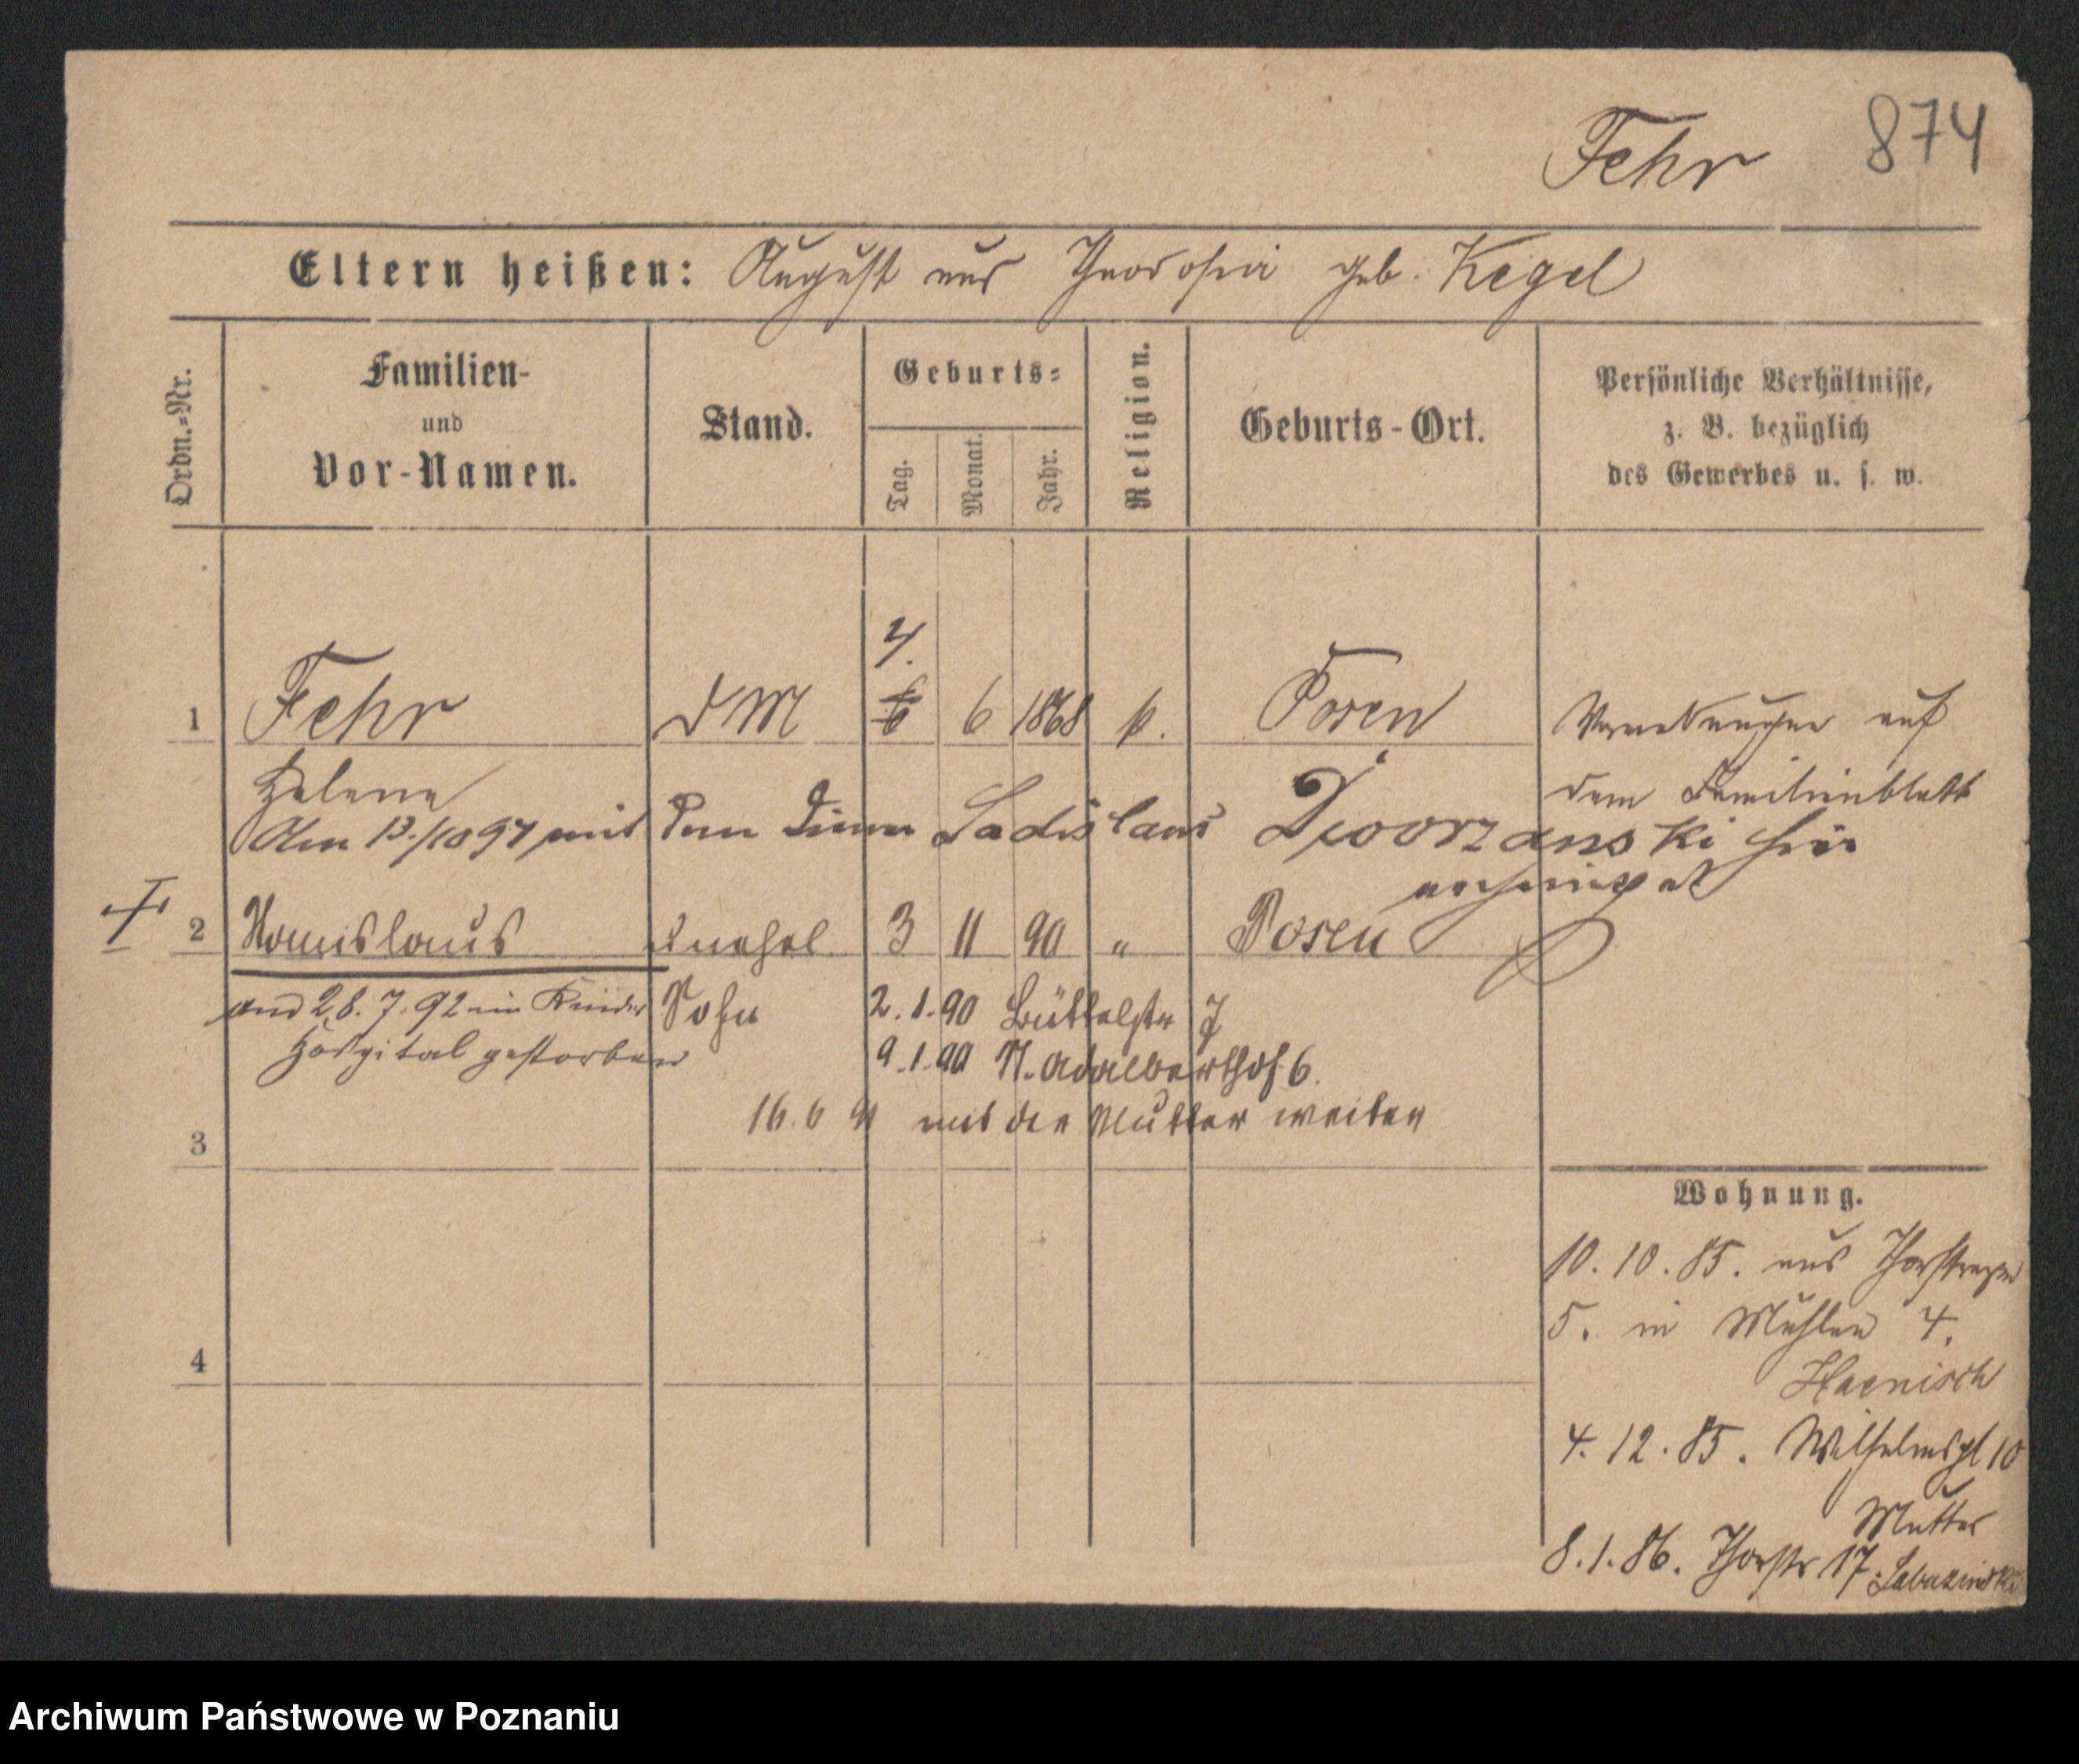 Fehr 874
Eltern heißen: August und Theodosia geb. Kegel
Ordn.=Nr.
Familien-
und
Vor-Namen.
Stand.
Geburts=
Tag.
Monat.
Jahr.
Religion.
Geburts-Ort.
Persönliche Verhältnisse,
z. B. bezüglich
des Gewerbes u. s. w.
4.
1 Fehr DM 6 6 1868 k. Posen
Helene
auf
dem Familienblatt
Am 13./10 97 mit dem Diener Ladislaus Dworzanski hier
2 unehel. 3 11 90 " Posen
Sohn
am 28. 7. 92 im Kinder
Hospital gestorben
2. 1. 90 Büttelstr 7
9. 1. 90 N. Adalberthof 6.
16. 6 91 mit der Mutter weiter
3
4
Wohnung.
10. 10. 85. aus Thorstrasse
5. in Mühlen 4.
Haenisch
4. 12. 85. Wilhelmspl 10
Mutter
8. 1. 86. Thorstr 17.
Archiwum Państwowe w Poznaniu